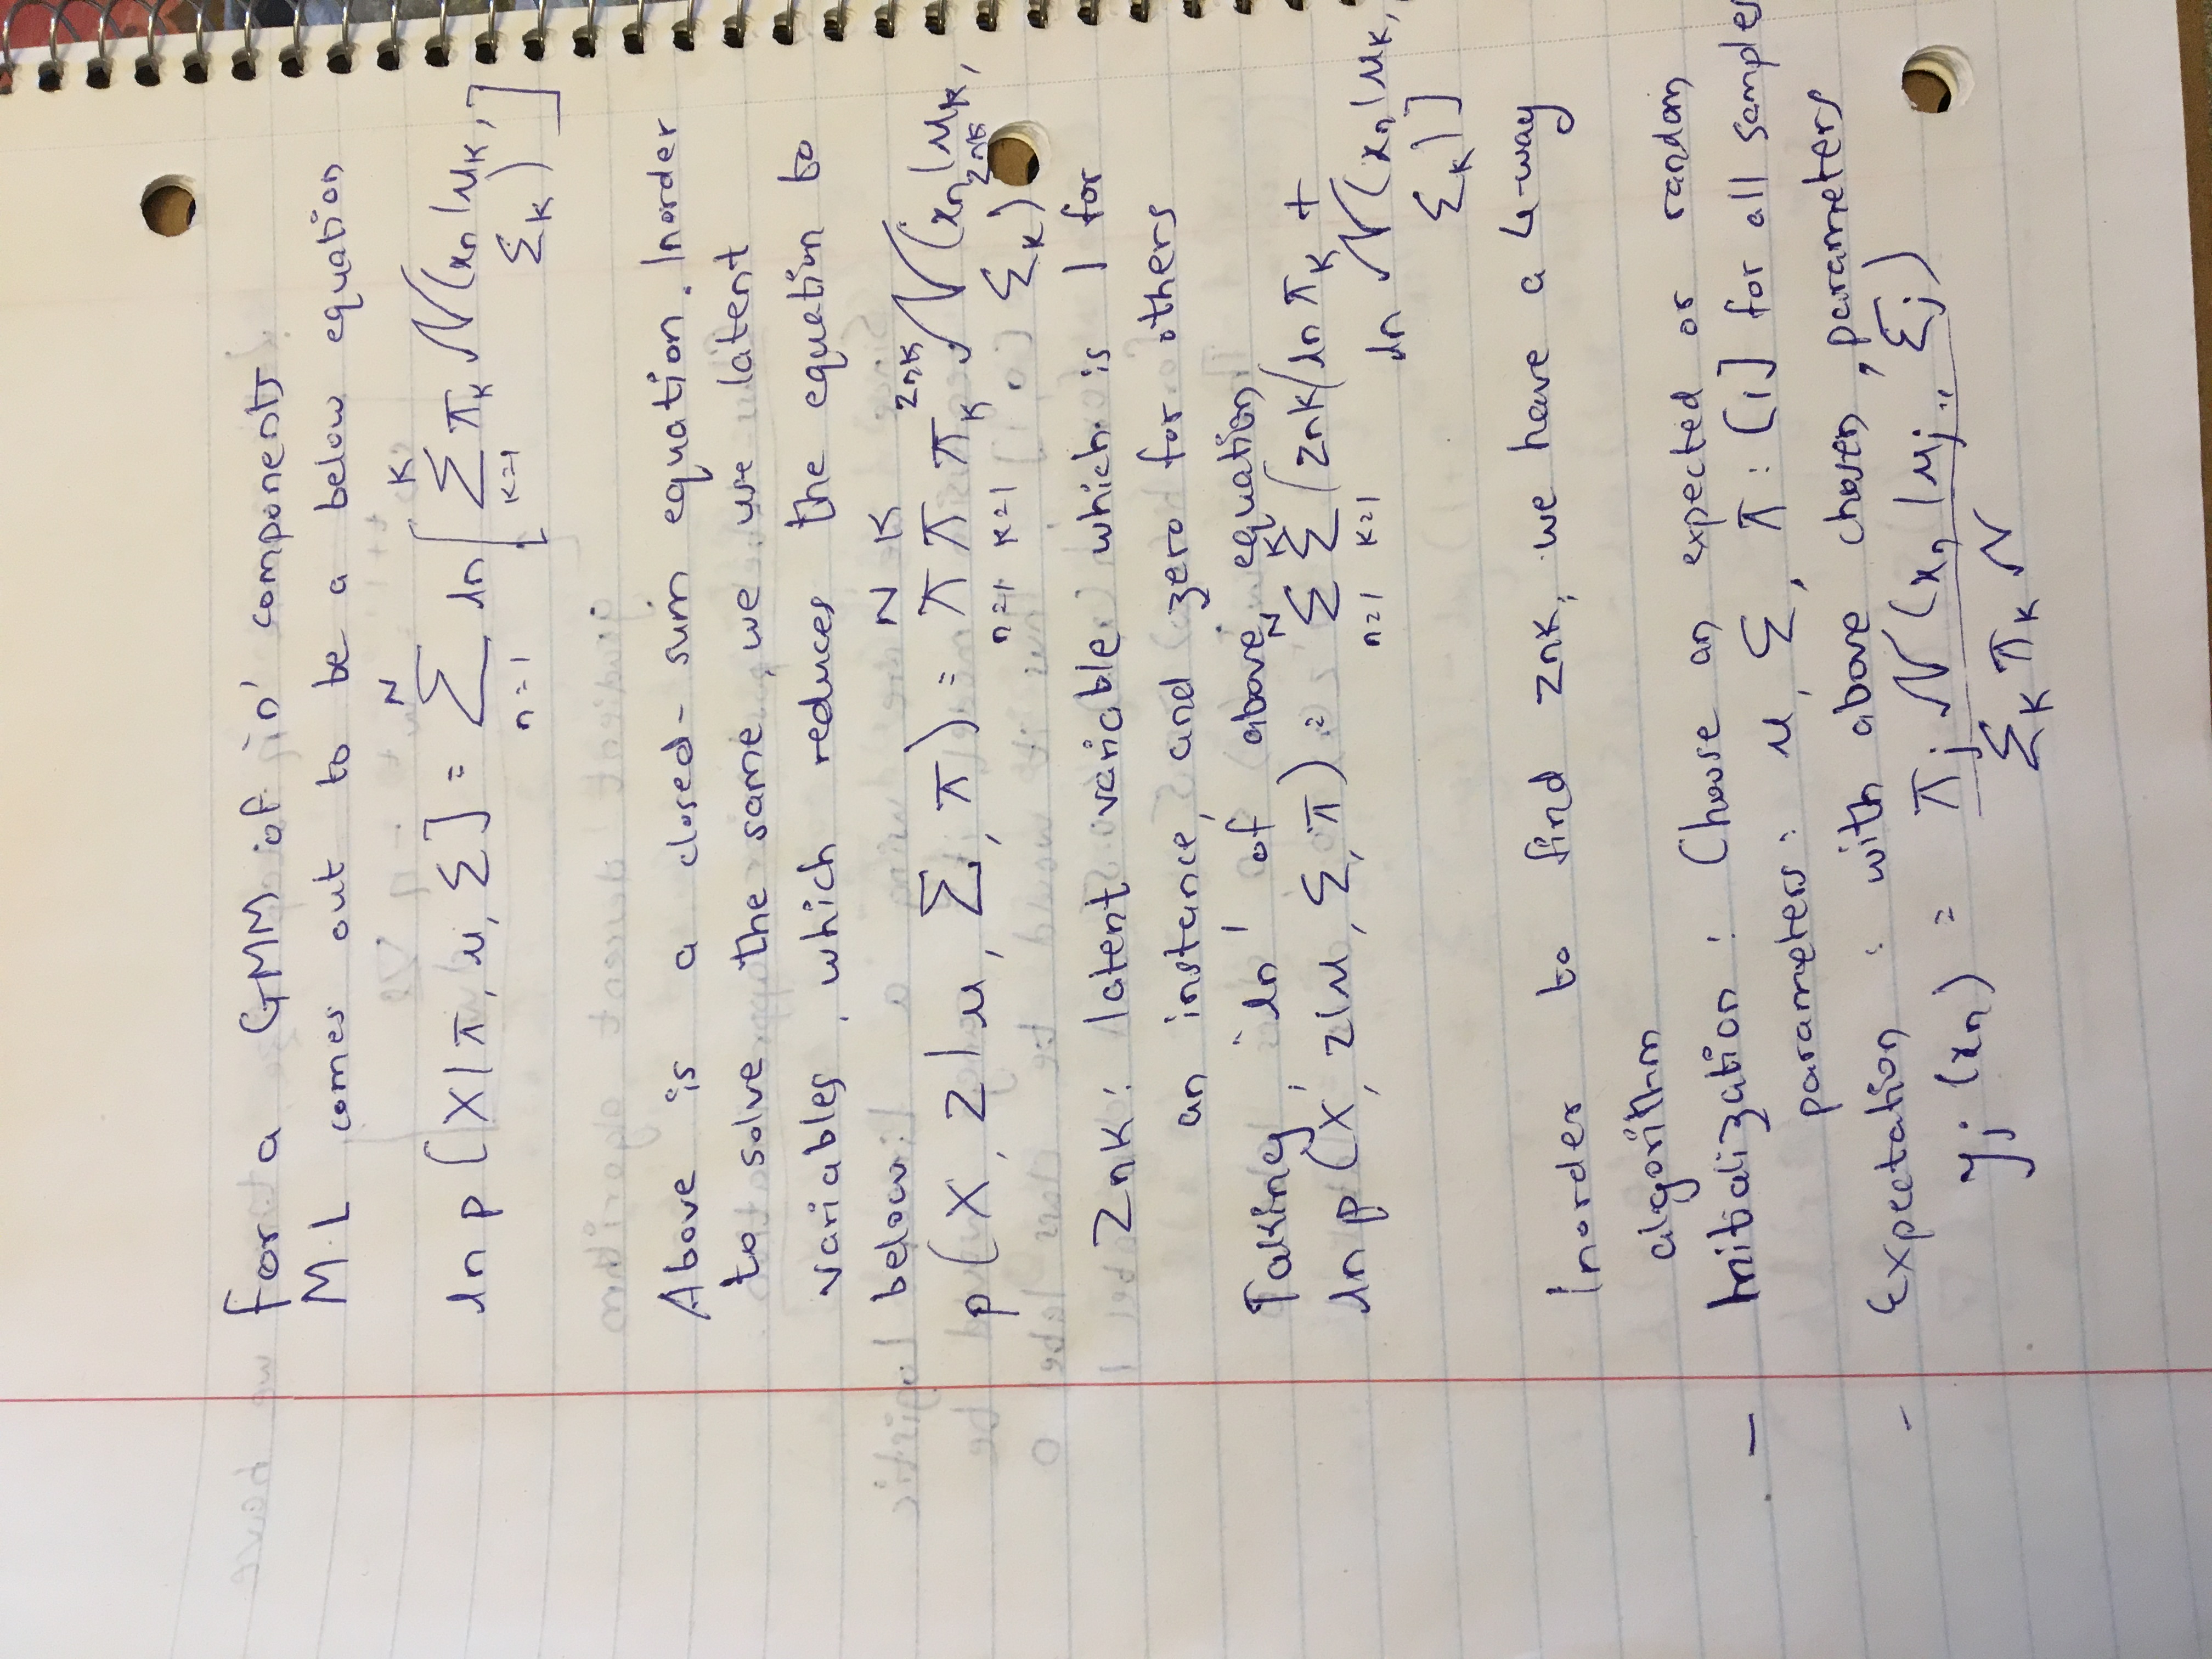 For a GMM of 'n' components
M.L comes out to be a below equation
ln p [X | π, μ, Σ] = Σ_{n=1}^{N} ln [ Σ_{k=1}^{K} π_K N(x_n | μ_K,
Σ_K) ]
Above is a closed-sum equation. Inorder
to solve the same, we use latent
variables, which reduces the equation to
below:
p(X, Z | μ, Σ, π) = π_{n=1}^{N} π_{k=1}^{K} π_K^{znk} N(x_n | μ_K,
Σ_K)^{znk}
ZnK: latent variable which is 1 for
an instance, and zero for others
Taking, 'ln' of above equation
ln p (X, z | μ, Σ, π) = Σ_{n=1}^{N} Σ_{k=1}^{K} (znk (ln π_K +
ln N(x_n | μ_K,
Σ_K) ]
Inorder to find znk, we have a 4-way
algorithm
- Initialization: Choose an expected or random
parameters: μ, Σ, π : [1] for all samples
- Expectation: with above chosen, parameters
y_j (x_n) = π_j N(x_n | μ_j, Σ_j)
Σ_K π_K N